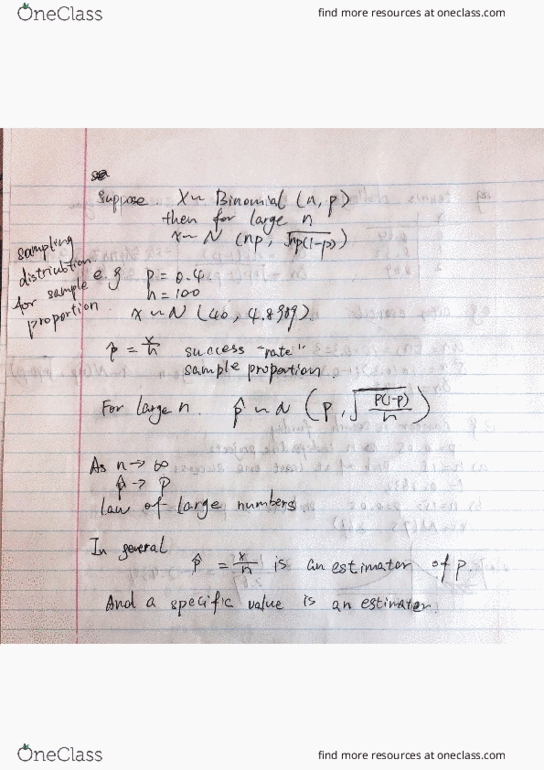 OneClass
find more resources at oneclass.com
Suppose X ~ Binomial (n, p)
then for large n
X ~ N (np, √np(1-p))
sampling
distriubtion
for sample
proportion.
e.g p = 0.4
n = 100
X ~ N (40, 4.8989).
p̂ = x/n success "rate"
sample proportion.
For large n. p̂ ~ N (p, √p(1-p)/n)
As n → ∞
p̂ → p
law of large numbers
In general
p̂ = x/n is an estimator of p.
And a specific value is an estimator.
OneClass
find more resources at oneclass.com